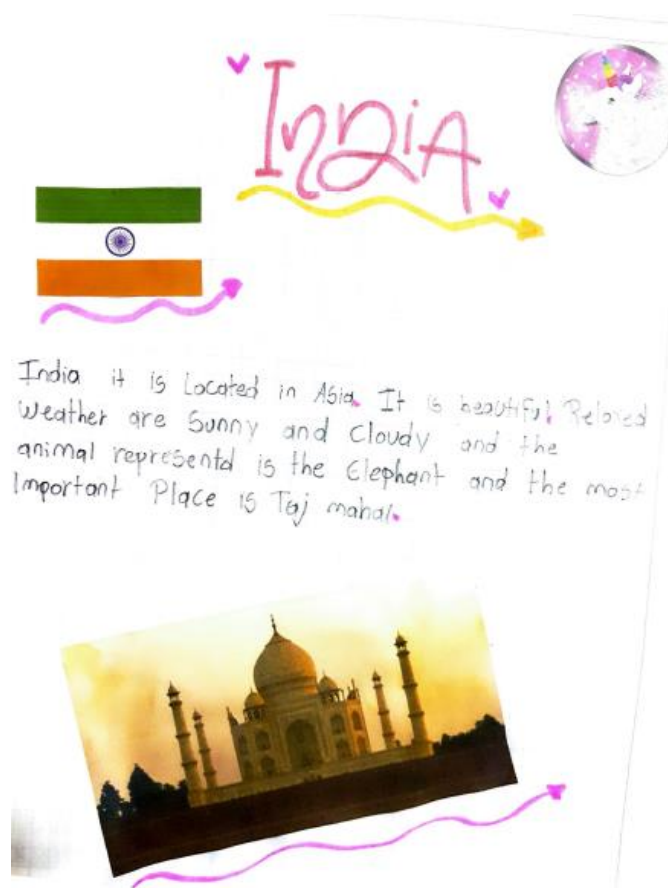 IndiA
India it is Located in Asia. It is beautiful. Relaxed
Weather are Sunny and Cloudy and the
animal representd is the Elephant and the most
Important Place is Taj mahal.